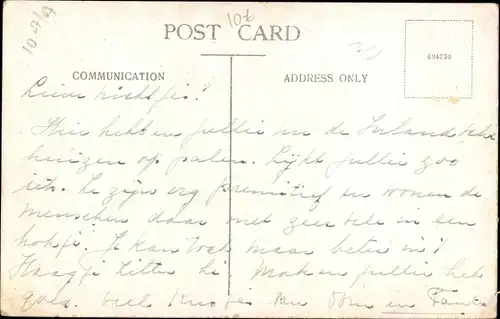 10 ct
POST CARD
COMMUNICATION
ADDRESS ONLY
434750
Lieve nichtjes!
Hier hebben jullie nu de Inlandsche
huizen op palen. Lijkt jullie zoo
iets. Ze zijn erg premitief en wonen de
menschen daar met zees vele in een
hokje. Je kan toch maar beter in 't
Haagje zitten hè. Maken jullie het
goed. veel kusjes van Oom en Tante